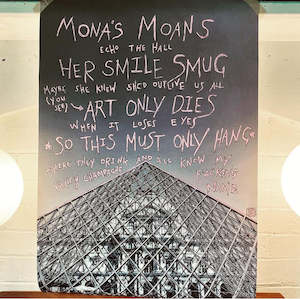 MONA'S MOANS
ECHO THE HALL
HER SMILE SMUG
MAYBE SHE KNEW SHE'D OUTLIVE US ALL
(YOU SEE) → ART ONLY DIES
WHEN IT LOSES EYES
*SO THIS MUST ONLY HANG*
WHERE THEY DRINK AND I'LL KNOW MY
CHAMPAGNE